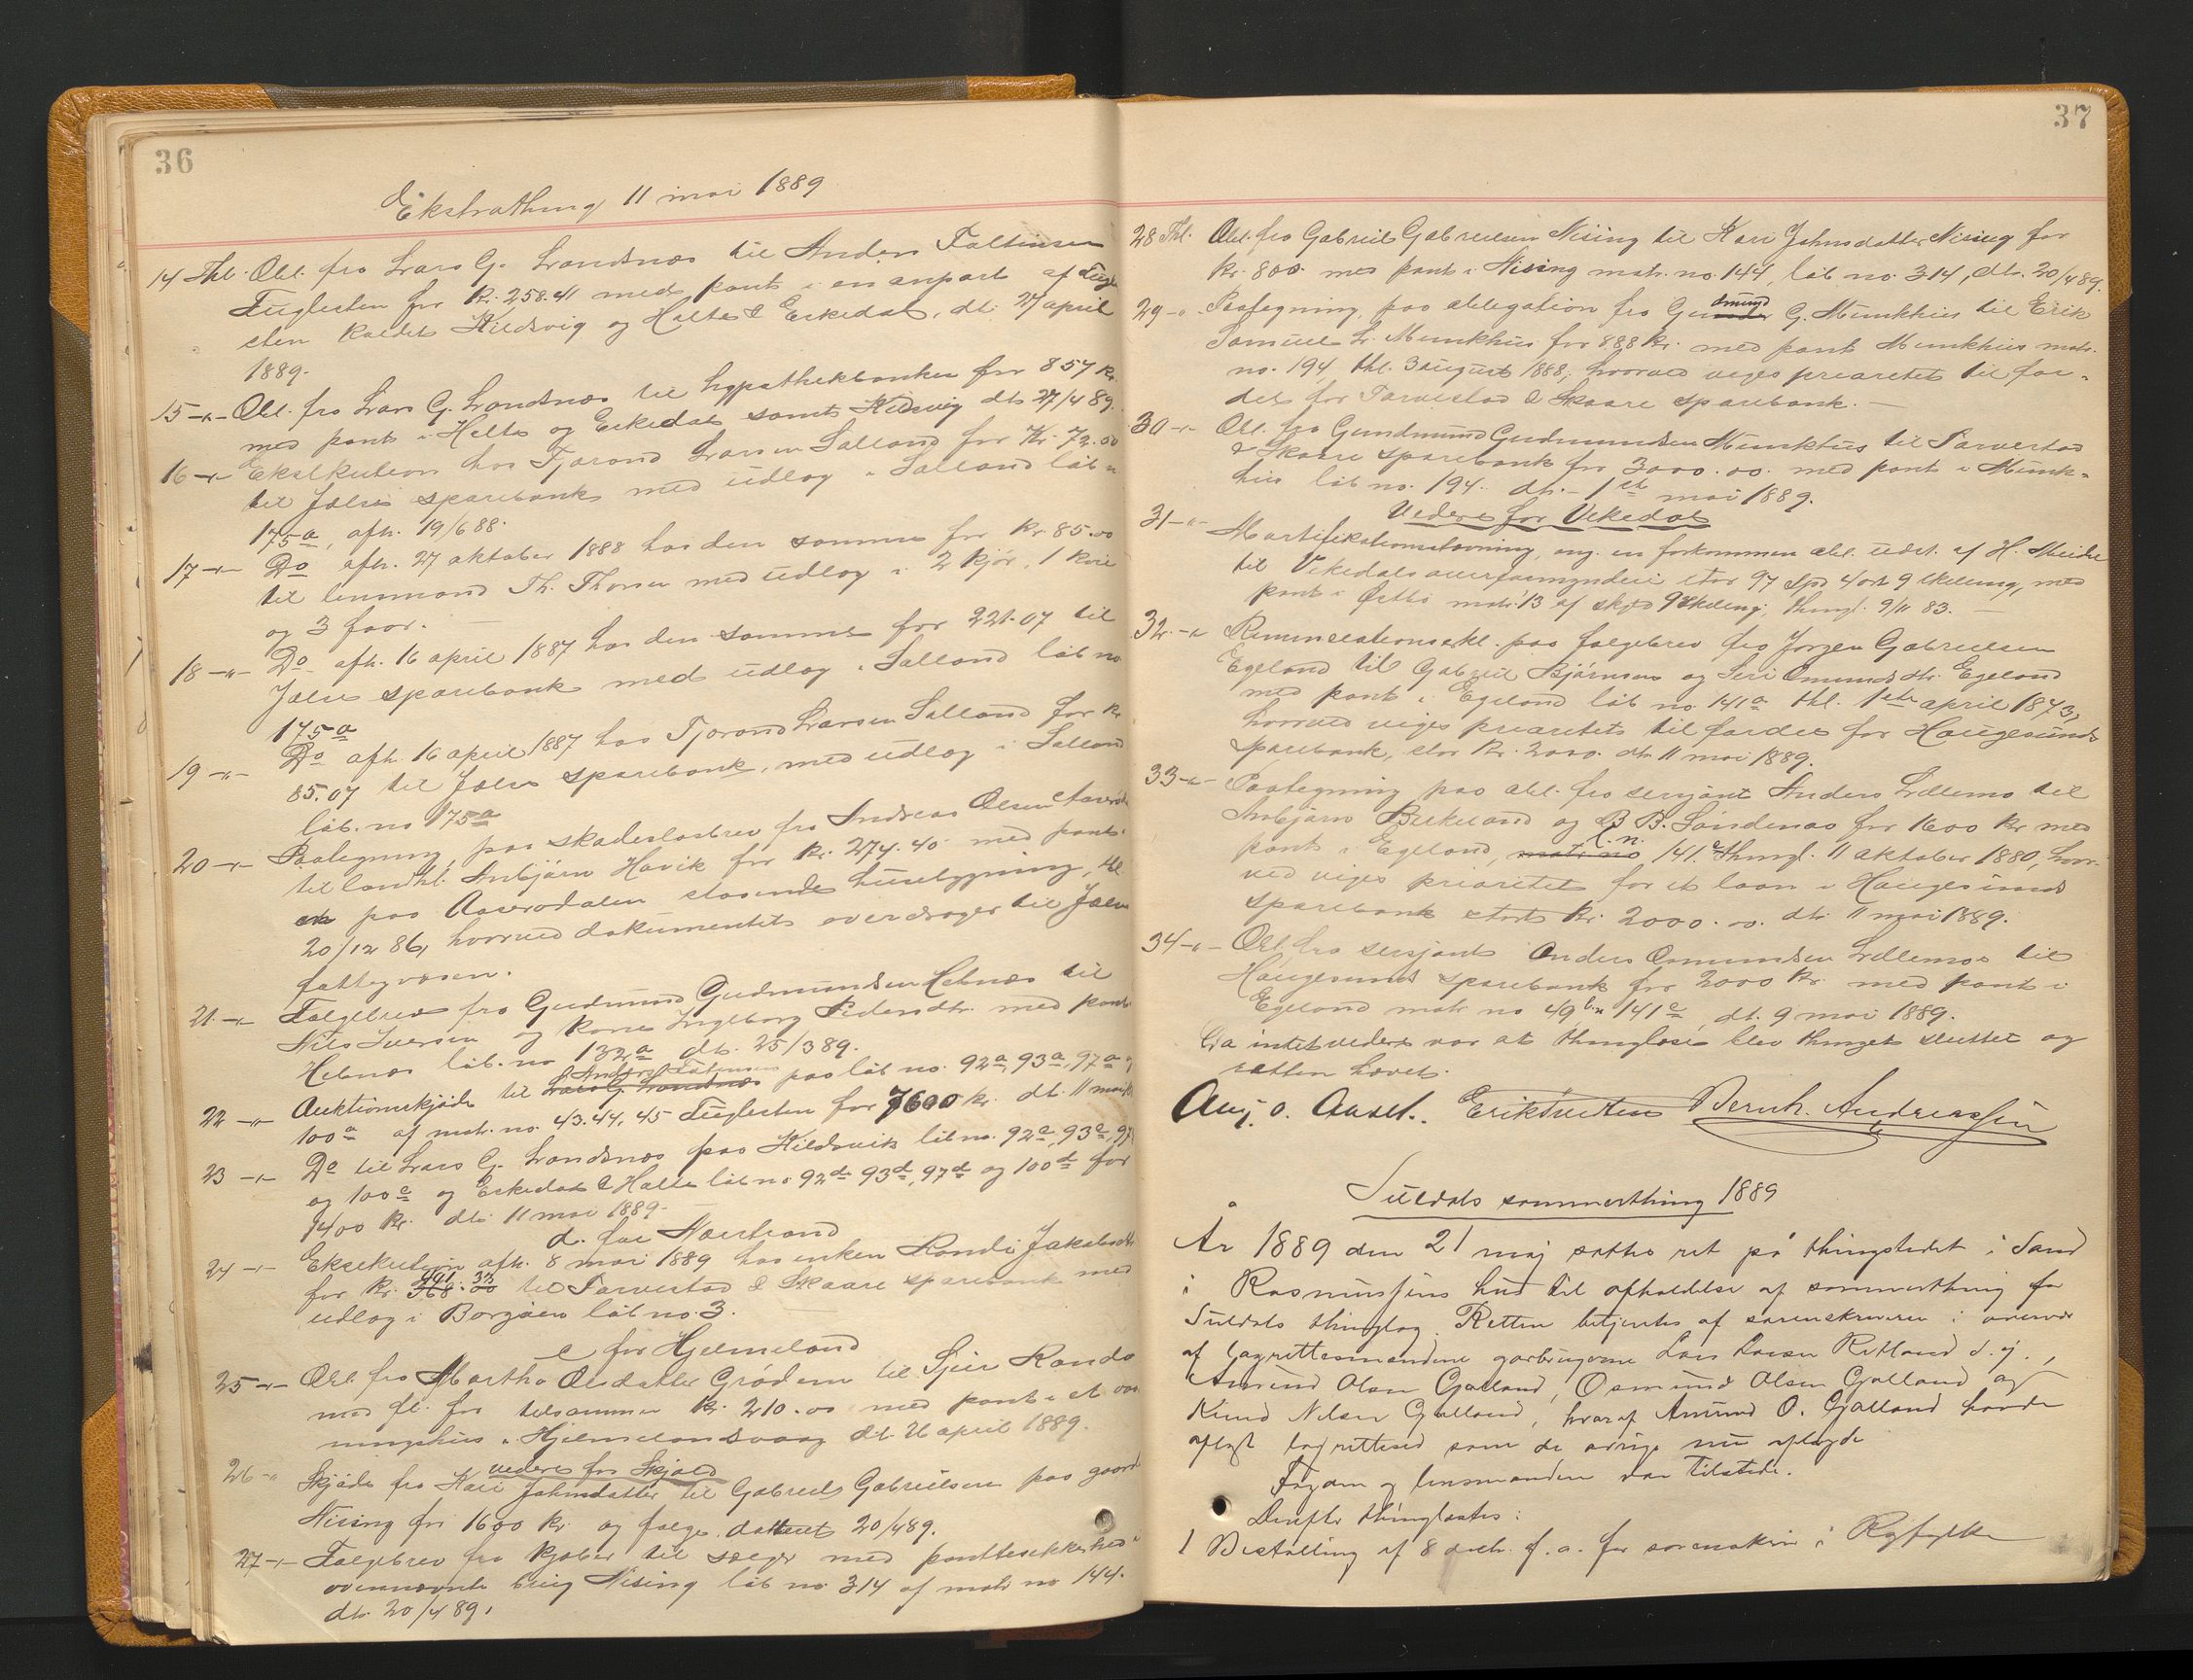 36
Ekstrathing 11 mai 1889
14 Thl. Obl. fra Lars G. Landsnes til Anders Faltinsen
Fuglesten for kr. 258.41 med pant i en anpart af Fugle
sten kaldet Hildsvig og Halte & Eskedal, dt. 27 april
1889.
15 -"- Obl. fra Lars G. Landsnes til hypothekbanken for 857 kr.
med pant i Helte og Eskedal samt Hildsvig dt 27/4 89.
16 -"- Eksekution hos Tjerand Larsen Salland for Kr. 72.00
til Jælse sparebank med udlag i Salland løb n
175a, afh. 19/6 88.
17 -"- Do afh. 27 oktober 1888 hos den samme for kr 85.00
til lensmand Th. Thorsen med udlæg i 2 kjør, 1 kvie
og 3 faar.
18 -"- Do afh. 16 april 1887 hos den samme for 221.07 til
Jælse sparebank med udlæg i Salland løb no
175a
19 -"- Do afh. 16 april 1887 hos Tjerand Larsen Salland for kr
85.07 til Jælse sparebank, med udlæg i Salland
løb. no 175a
20 -"- Paategning paa skadesløsbrev fra Andreas Olsen
til landhl. Anbjørn Havik for kr. 274.40 med pant i
paa Aaserødalen staaende husebygning, thl.
20/12 86, hvorved dokumentet overdrages til Jælse
fattigvæsen.
21 -"- Følgebrev fra Gudmund Gudmundsen Hebnes til
Nils Iversen og kone Ingeborg Pedersdtr. med pant
Hebnes løb. no 132a dt. 25/3 89.
22 -"- Auktionsskjøde til Anders Faltinsen paa løb no. 92a, 93a, 97a og
100a af matr. no. 43.44.45 Fuglesten for 7600 kr. dt. 11 mai
23 -"- Do til Lars G. Landsnes paa Hildsvik løb no. 92c, 93c, 97
og 100c og Eskedal & Halte løb no 92d, 93d, 97d og 100d for
1400 kr. dt. 11 mai 1889.
d. for Nærstrand
24 -"- Eksekution afh. 8 mai 1889 hos enken Randi Jakobsdtr
for kr. 441.33 til Torvestad & Skaare sparebank med
udlæg i Borgøen løb no. 3.
e for Hjelmeland
25 -"- Obl. fra Martha Olsdatter Grødem til Sjur Rande
med fl. for tilsammen kr. 210.00 med pant i et vaa
ningshus i Hjelmelandsvaag dt. 26 april 1889.
videre for Skjold
26 -" Skjøde fra Kari Johnsdatter til Gabriel Gabrielsen paa gaard
Nising for 1600 kr. og følge, dateret 20/4 89.
27 -"- Følgebrev fra kjøber til sælger med panttesikkerhed i
ovennævnte brug Nising løb no 314 af matr no 144.
dt. 20/4 89.
37
28 Thl. Obl. fra Gabriel Gabrielsen Nising til Kari Johnsdatter Nising for
kr. 800. med pant i Nising matr. no. 144, løb no. 314, dt. 20/4 89.
29 -"- Paategning paa obligation fra Gudmund G. Munkhus til Erik
Samuel L. Munkhus for 888 kr. med pant Munkhus matr.
no. 194, thl. 3 august 1888, hvorved viges prioritet til for-
del for Torvestad & Skaare sparebank. —
30 -"- Obl. fra Gundmund Gudmundsen Munkhus til Torvestad
& Skaare sparebank for 3000.00. med pant i Munk-
hus løb no. 194. dt. 1ste mai 1889.
Videre for Vikedal
31 -"- Mortifikationsstævning, ang. en forkommen obl. udst. af H.
til Vikedals overformynderi stor 97 Spd 4 ort 9 skilling, med
pant i Østbø matr. 13 af skyld 9 skilling, thingl. 9/11 83. —
32 -"- Renunciationserkl. paa følgebrev fra Jørgen Gabrielsen
Egeland til Gabriel Bjørnsen og Siri Omundsdtr. Egeland
med pant i Egeland løb no 141a thl. 1ste april 1873,
hvorved viges prioritet til fordel for Haugesunds
sparebank, stor kr. 2000. dt. 11 mai 1889.
33 -"- Paategning paa obl. fra sersjant Anders Lillemo til
Anbjørn Birkeland og B. B. Søndenaa for 1600 kr med
pant i Egeland, matr. no l.n. 141.c thingl. 11 oktober 1880, hvor-
ved viges prioritet for et laan i Haugesunds
sparebank stort kr. 2000.00. dt. 11 mai 1889.
34 -"- Obl. fra sersjant Anders Omundsen Lillemo til
Haugesunds sparebank for 2000 kr. med pant i
Egeland matr no 49 l.n 141c, dt. 9 mai 1889.
Da intet videre var at thinglæse blev thinget sluttet og
retten hævet.
Aug. O. Aasel. Erik Bernh. Andreassen
Suldals sommerthing 1889
År 1889 den 21 maj sattes ret på thingstedet i Sand
i Rasmussens hus til afholdelse af sommerthing for
Suldals thinglag. Retten betjentes af sorenskriveren i overvær
af lagrettesmændene gårbrugerne Lars Larsen Ritland d. y.,
Amund Olsen Gjalland, Osmund Olsen Gjalland og
Knud Nilsen Gjalland, hvoraf Amund O. Gjalland havde
aflagt lagretteed som de øvrige nu aflagde
Fogden og lensmanden var tilstede.
Derefter thinglæstes:
1 Bestalling af 8 f. a. for sorenskriver i Ryfylke